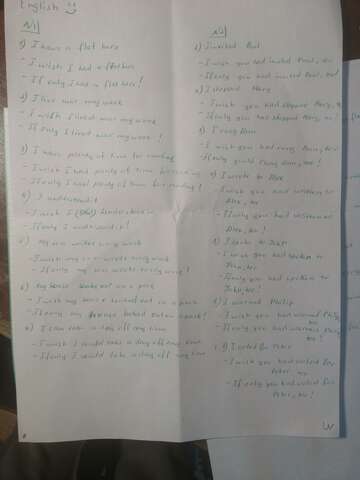 English
N1
1) I have a flat here
- I wish I had a flat here
- If only I had a flat here!
2) I live near my work
- I wish I lived near my work
- If only I lived near my work!
3) I have plenty of time for reading
- I wish I had plenty of time for reading
- If only I had plenty of time for reading!
4) I understand it
- I wish I understood it
- If only I understood it!
5) my son writes every week
- I wish my son wrote every week
- If only my son wrote every week!
6) my house looks out on a park
- I wish my house looked out on a park
- If only my house looked out on a park!
I can take a day off any time
- I wish I could take a day off any time
- If only I could take a day off any time
N2
1) I invited Paul
- I wish you had invited Paul, too
- If only you had invited Paul, too!
2) I stopped Mary
- I wish you had stopped Mary, too
- If only you had stopped Mary, too!
3) I rang Dom
- I wish you had rang Dom, too
- If only you'd rang Dom, too!
4) I wrote to Alex
- I wish you had written to
Alex, too
- If only you had written to
Alex, too!
5) I spoke to Juli
- I wish you had spoken to
- If only you had spoken to
6) I warned Philip
- I wish you had warned Philip,
too
- If only you had warned Philip,
too!
I voted for Peter
- I wish you had voted for
Peter, too
- If only you had voted for
Peter, too!